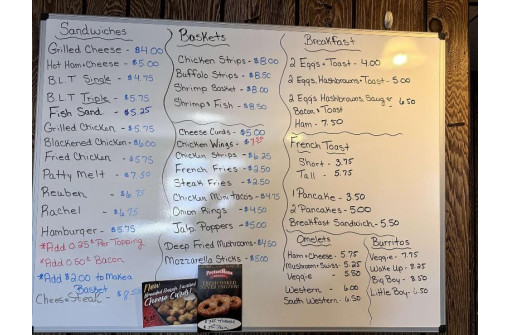 Sandwiches
Grilled Cheese - $4.00
Hot Ham & Cheese - $5.00
B.L.T Single - $4.75
B.L.T Triple - $5.75
Fish Sand. - $5.25
Grilled Chicken - $5.75
Blackened Chicken - $6.00
Fried Chicken - $5.75
Patty Melt - $7.50
Reuben - $6.75
Rachel - $6.75
Hamburger - $5.75
*Add 0.25¢ Per Topping
*Add 0.50¢ Bacon
*Add $2.00 to Make a
Basket
Cheese Steak - $8.50
Baskets
Chicken Strips - $8.00
Buffalo Strips - $8.50
Shrimp Basket - $8.00
Shrimp & Fish - $8.50
Cheese Curds - $5.00
Chicken Wings -
Chicken Strips - $6.25
French Fries - $2.50
Steak Fries - $2.50
Chicken Mini Tacos - $4.75
Onion Rings - $4.50
Jalp Poppers - $5.00
Deep Fried Mushrooms - $4.50
Mozzarella Sticks - $5.00
New
Cheese Curds!
PretzelHaus
Breakfast
2 Eggs & Toast - 4.00
2 Eggs, Hashbrowns & Toast - 5.00
2 Eggs, Hashbrowns, 6.50
Bacon & Toast
Ham - 7.50
French Toast
Short - 3.75
Tall - 5.75
1 Pancake - 3.50
2 Pancakes - 5.00
Breakfast Sandwich - 5.50
Omelets
Ham & Cheese - 5.75
Mushroom & Swiss - 5.25
Veggie - 5.50
Western - 6.00
South Western - 6.50
Burritos
Veggie - 7.75
Wake Up - 8.25
Big Boy - 8.50
Little Boy - 6.50